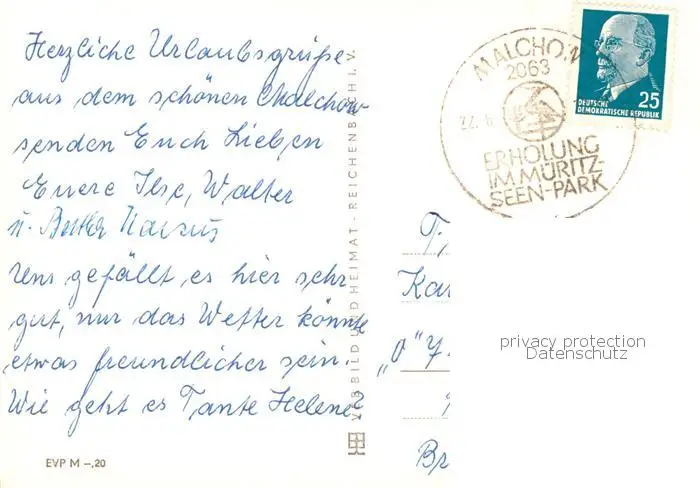 Herzliche Urlaubsgrüße
aus dem schönen Malchow
senden Euch Lieben
Euere Ilse, Walter
u.
Uns gefällt es hier sehr
gut, nur das Wetter könnte
etwas freundlicher sein.
Wie geht es Tante Helene?
EVP M -,20
VEB BILD UND HEIMAT · REICHENBACH I. V.
MALCHO
2063
22. 6
ERHOLUNG
IM MÜRITZ-
SEEN-PARK
25
DEUTSCHE
DEMOKRATISCHE REPUBLIK
Kar
privacy protection
Datenschutz